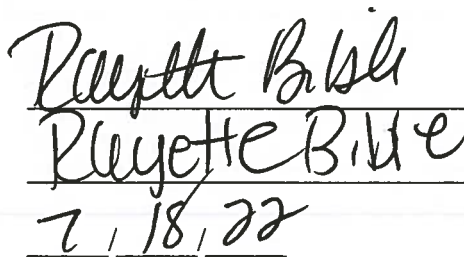 Rayette Bible
Rayette Bible
7, 18, 22